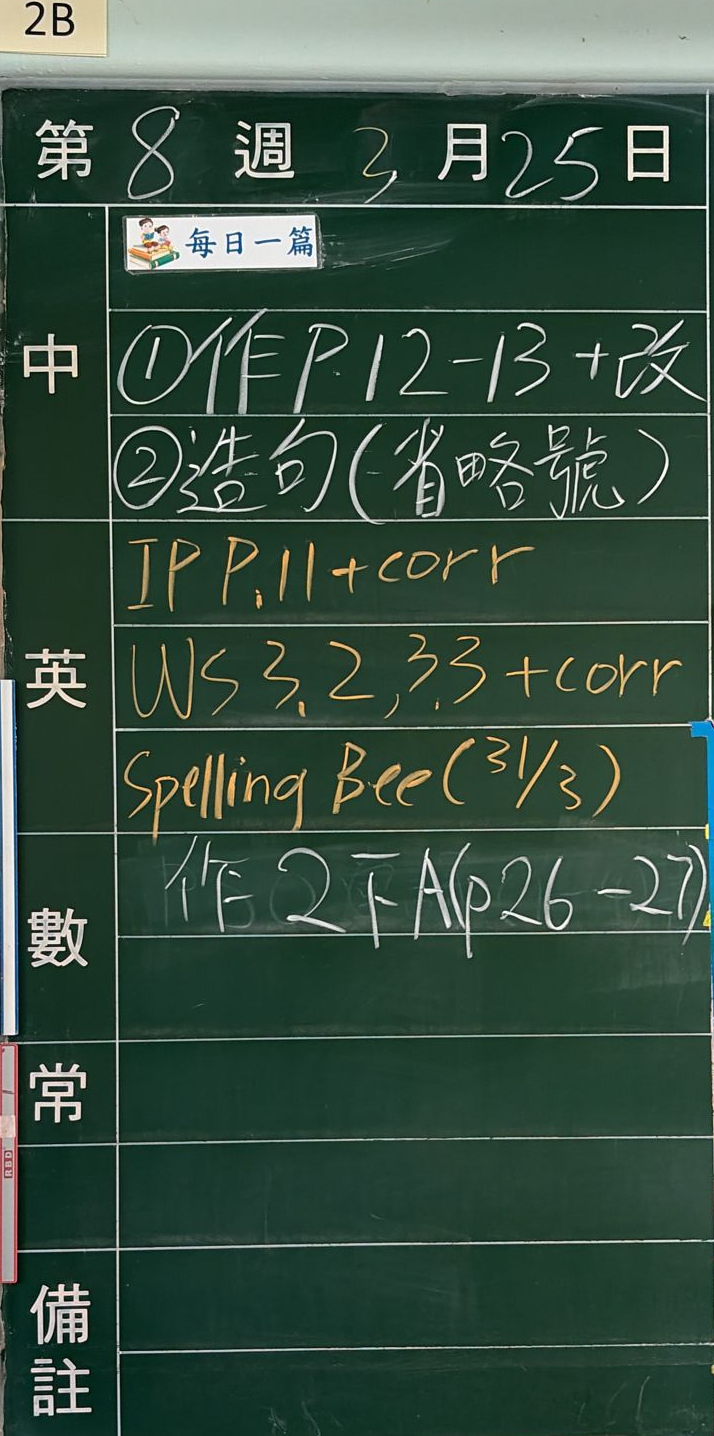 2B
第 8 週 3 月 25 日
每日一篇
中
①作 P.12-13 +改
②造句(省略號)
英
IP P.11+corr
WS 3.2, 3.3 +corr
Spelling Bee (31/3)
數
作 2下A(p26-27)
常
備註
RBD